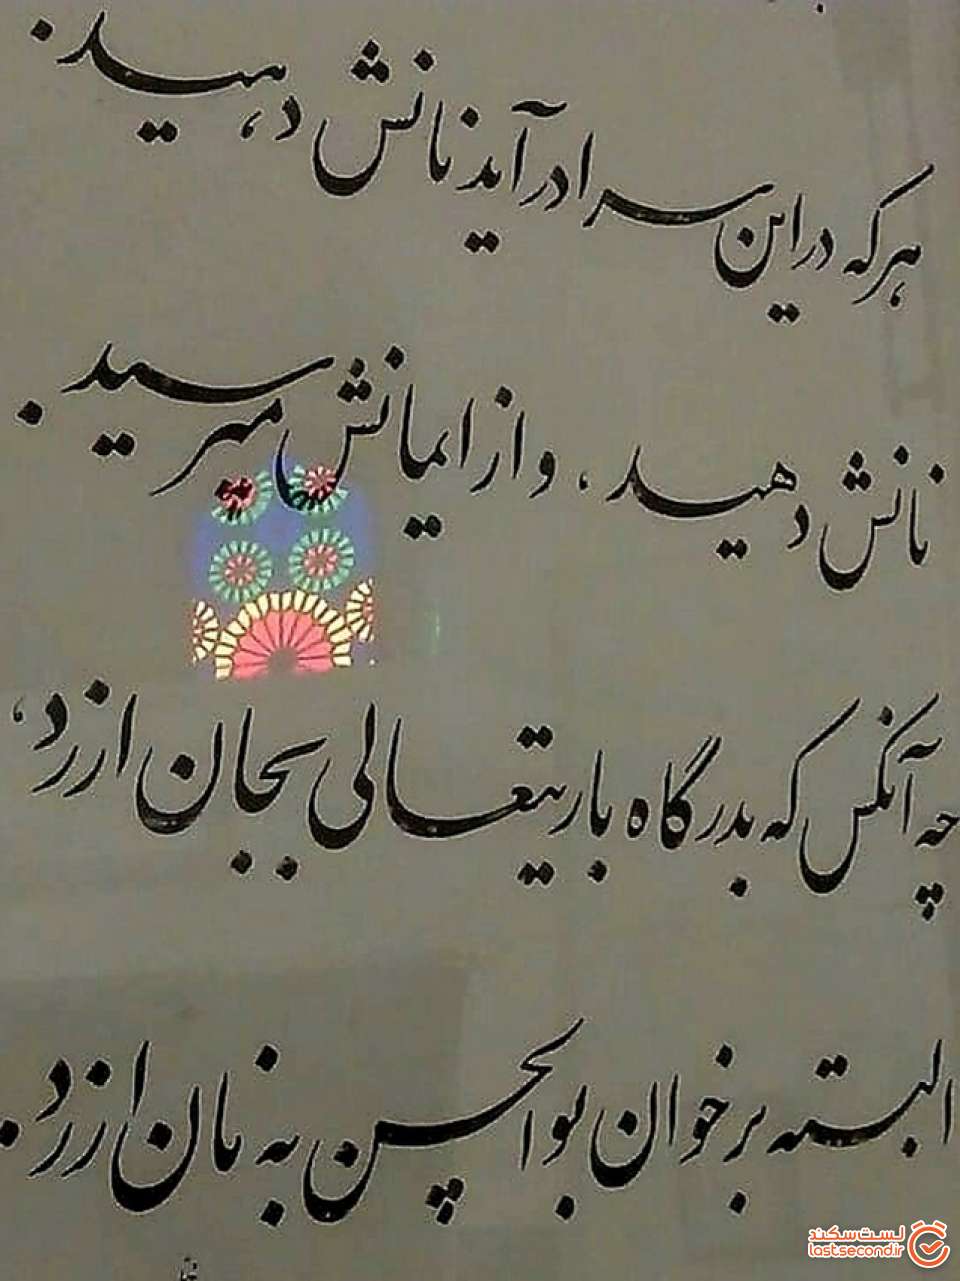 هرکه در این سرا درآید نانش دهید.
نانش دهید، و از ایمانش مپرسید.
چه آنکس که بدرگاه باریتعالی بجان ارزد،
البته بر خوان بوالحسن به نان ارزد.
لست سکند
lastsecond.ir